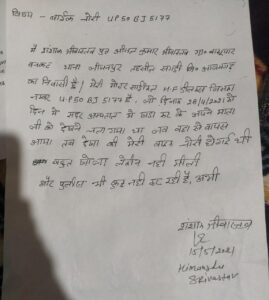 विषय - बाईक चोरी UP50 BJ 5177
मैं शशांक श्रीवास्तव पुत्र अनिल कुमार श्रीवास्तव ग्रा०
थाना जीयनपुर तहसील सगड़ी जि० आजमगढ़
का निवासी है। मेरी मोटर साईकिल H.F डीलक्स जिसका
नम्बर UP50 BJ 5177 है, जो दिनांक 28/4/2021 को
दिन में सदर अस्पताल में खड़ा कर के अपने माता
जी को देखने चला गया था जब वहा से वापस
आया तब देखा की मेरी बाइक चोरी हो गई थी
बहुत खोजा लेकीन नही मीली
और पुलीस भी कुछ नही कर रही है, अभी
शशांक श्रीवास्तव
15/5/2021
Himanshu
Srivastav